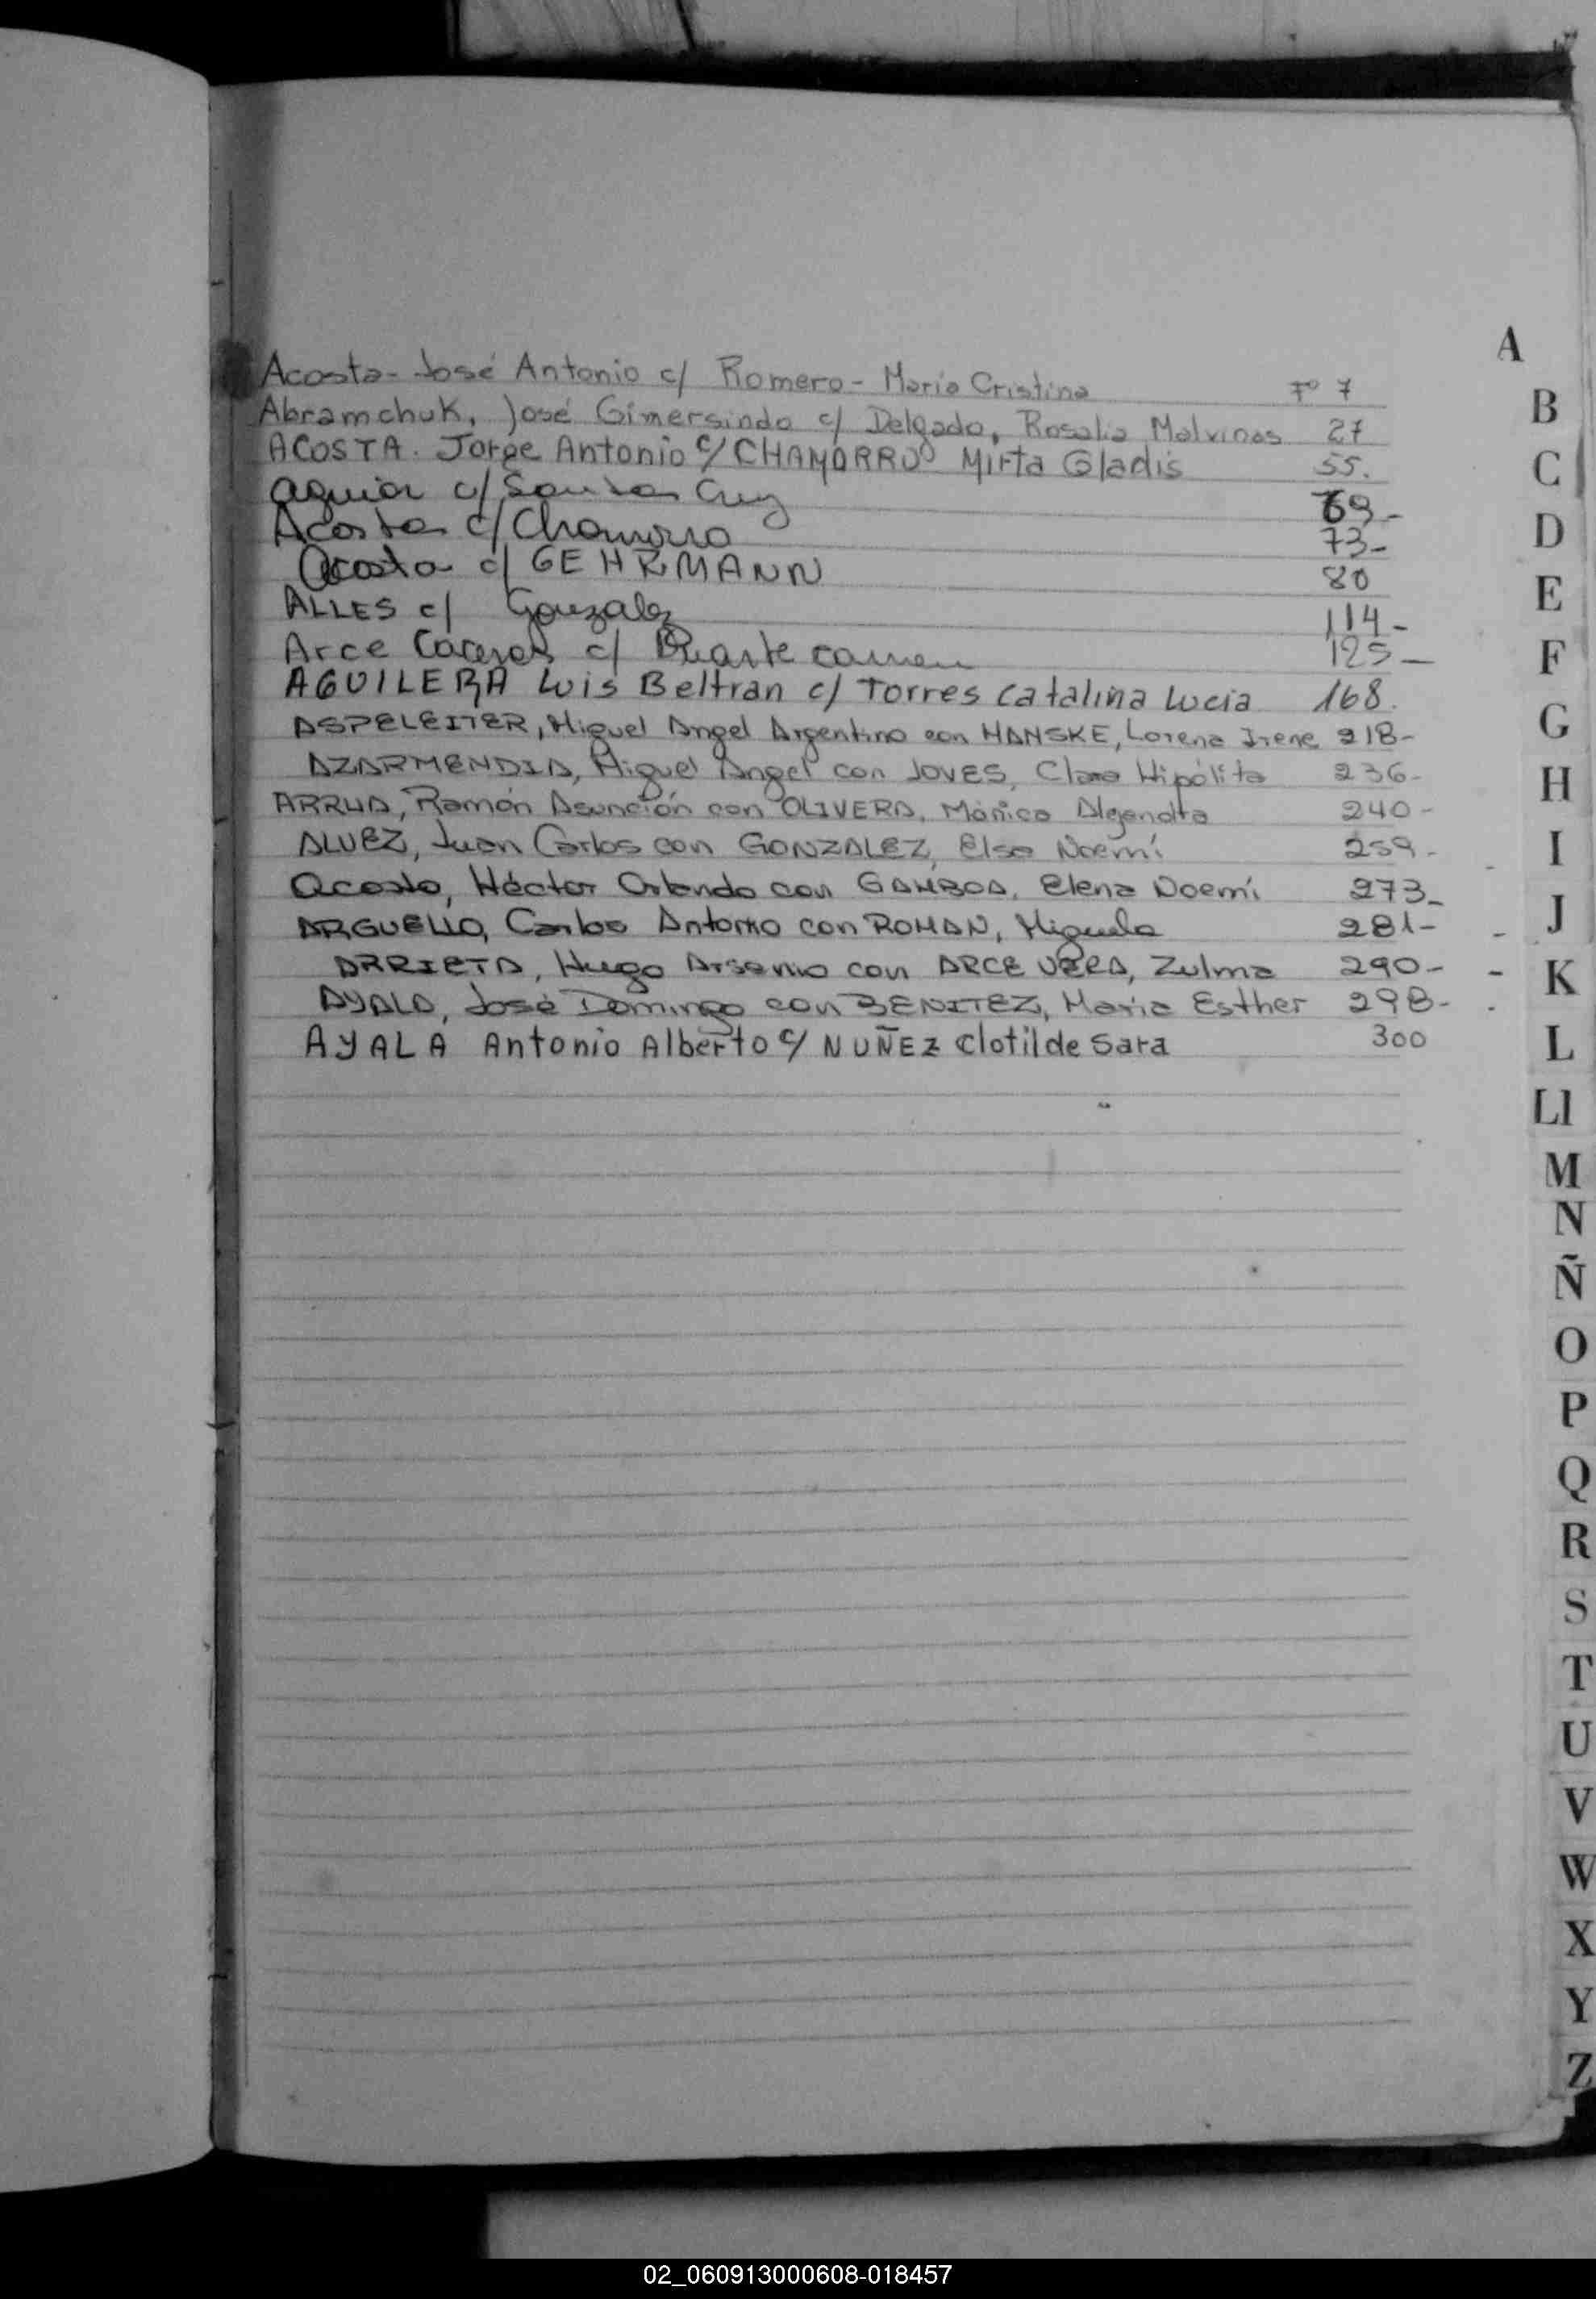 A
Acosta- José Antonio c/ Romero- María Cristina Fº 7
Abramchuk, José Gimersindo c/ Delgado, Rosalia Malvinas 27
ACOSTA. Jorge Antonio c/ CHAMORRO Mirta Gladis 55.
Aguiar c/ Santa Cruz 69-
Acosta c/ Chamorro 73-
Acosta c/ GEHRMANN 80
ALLES c/ Gonzalez 114-
Arce Caceres c/ Duarte Carmen 125-
AGUILERA Luis Beltran c/ Torres Catalina Lucia 168.
ASPELEITER, Miguel Angel Argentino con HANSKE, Lorena Irene 218-
AZARMENDIA, Miguel Angel con JOVES, Clara Hipólita 236-
ARRUA, Ramón Asunción con OLIVERA, Mónica Alejandra 240-
ALVEZ, Juan Carlos con GONZALEZ, Elsa Noemí 259-
Acosta, Héctor Orlando con GAMBOA, Elena Noemí 273-
ARGUELLO, Carlos Antonio con ROMAN, Miguela 281-
ARRIETA, Hugo Arsenio con ARCE VERA, Zulma 290-
AYALA, José Domingo con BENITEZ, María Esther 298-
AYALA Antonio Alberto c/ NUÑEZ Clotilde Sara 300
B
C
D
E
F
G
H
I
J
K
L
Ll
M
N
Ñ
O
P
Q
R
S
T
U
V
W
X
Y
Z
02_060913000608-018457